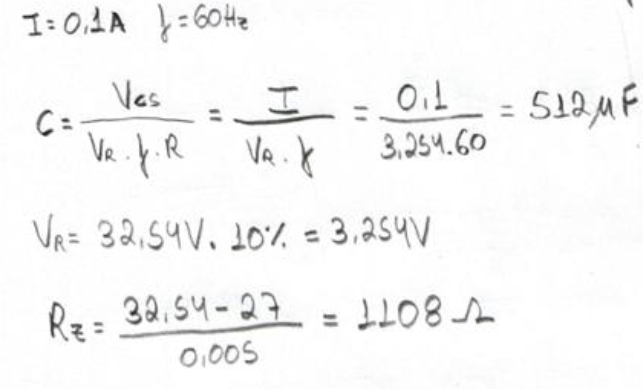 I=0,1A f=60Hz
C= Vcs / VR.f.R = I / VR.f = 0,1 / 3,254.60 = 512μF
VR= 32,54V. 10% = 3,254V
Rz= 32,54-27 / 0,005 = 1108 Ω